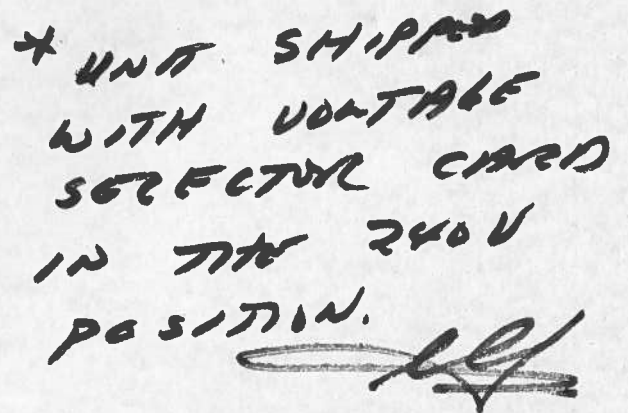 * UNIT SHIPPED
WITH VOLTAGE
SELECTOR CARD
IN THE 240V
POSITION.